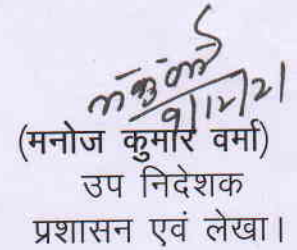 9/12/21
(मनोज कुमार वर्मा)
उप निदेशक
प्रशासन एवं लेखा।